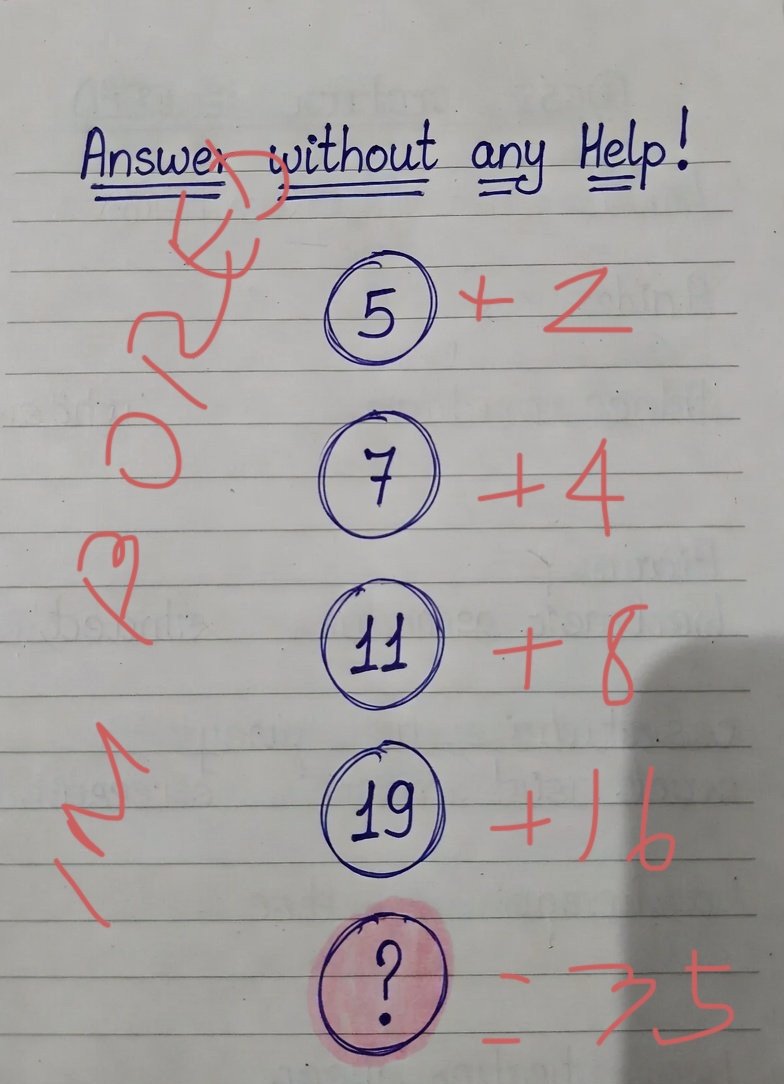 Answer without any Help!
5 + 2
7 + 4
11 + 8
19 + 16
? = 35
IM BORED